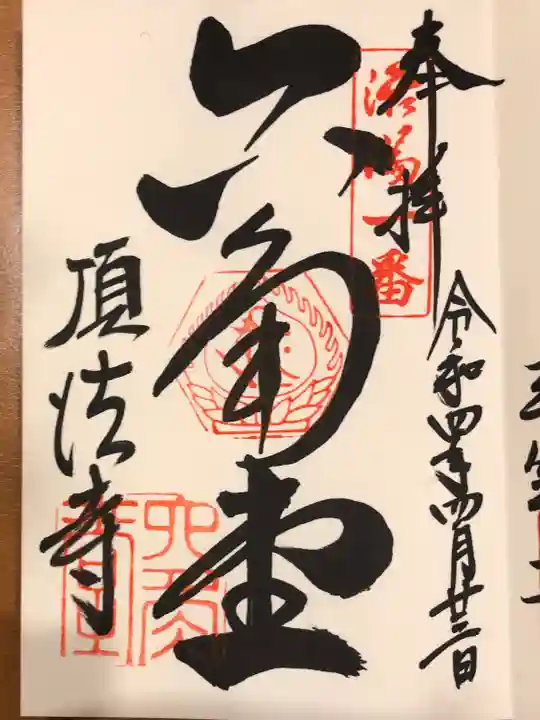 奉拝
洛陽一番
令和四年四月廿三日
六角堂
頂法寺
六角
堂印